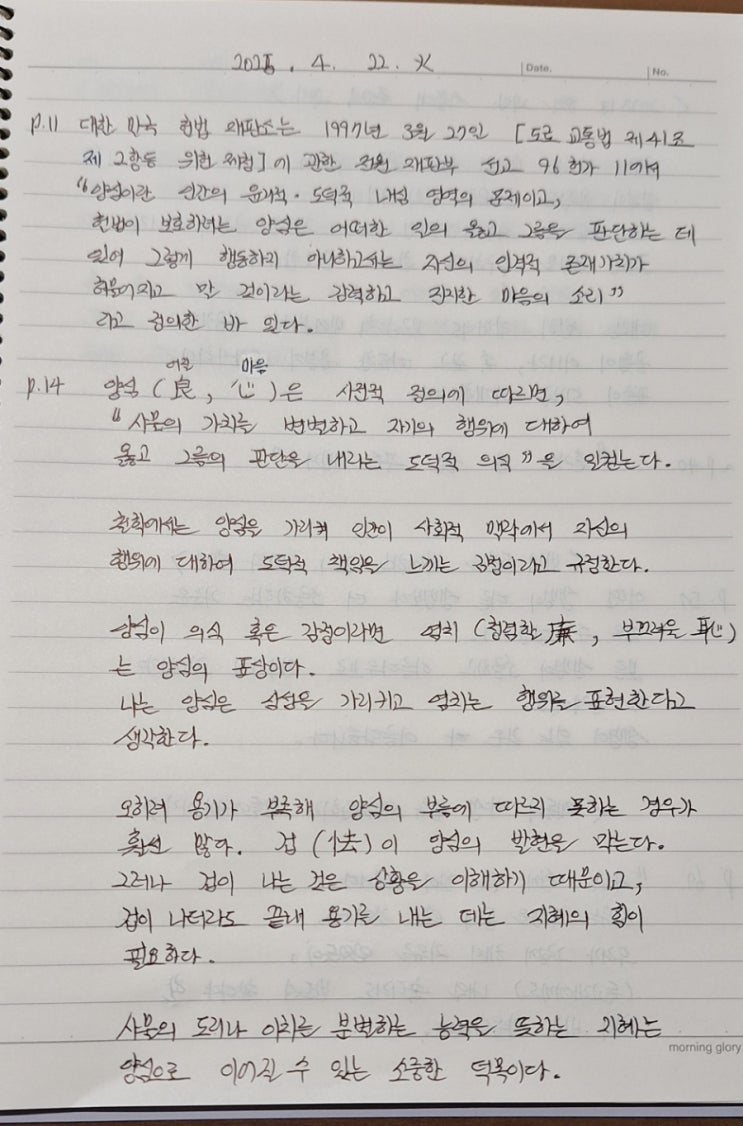 2025. 4. 22. 火
Date.
No.
p.11 대한 민국 헌법 재판소는 1997년 3월 27일 [도로 교통법 제41조
제2항등 위헌 제청]에 관한 전원 재판부 선고 96헌가 11에서
“양심이란 인간의 윤리적·도덕적 내심 영역의 문제이고,
헌법이 보호하려는 양심은 어떠한 일의 옳고 그름을 판단하는 데
있어 그렇게 행동하지 아니하고서는 자신의 인격적 존재가치가
허물어지고 말 것이라는 강력하고 진지한 마음의 소리”
라고 정의한 바 있다.
어질 마음
p.14 양심(良, 心)은 사전적 정의에 따르면,
“사물의 가치를 변별하고 자기의 행위에 대하여
옳고 그름의 판단을 내리는 도덕적 의식”을 일컫는다.
철학에서는 양심을 가리켜 인간이 사회적 맥락에서 자신의
행위에 대하여 도덕적 책임을 느끼는 감정이라고 규정한다.
양심이 의식 혹은 감정이라면 염치(청렴할 廉, 부끄러울 恥)
는 양심의 표상이다.
나는 양심은 심성을 가리키고 염치는 행위를 표현한다고
생각한다.
오히려 용기가 부족해 양심의 부름에 따르지 못하는 경우가
훨씬 많다. 겁(怯)이 양심의 발현을 막는다.
그러나 겁이 나는 것은 상황을 이해하기 때문이고,
겁이 나더라도 끝내 용기를 내는 데는 지혜의 힘이
필요하다.
사물의 도리나 이치를 분별하는 능력을 뜻하는 지혜는
양심으로 이어질 수 있는 소중한 덕목이다.
morning glory